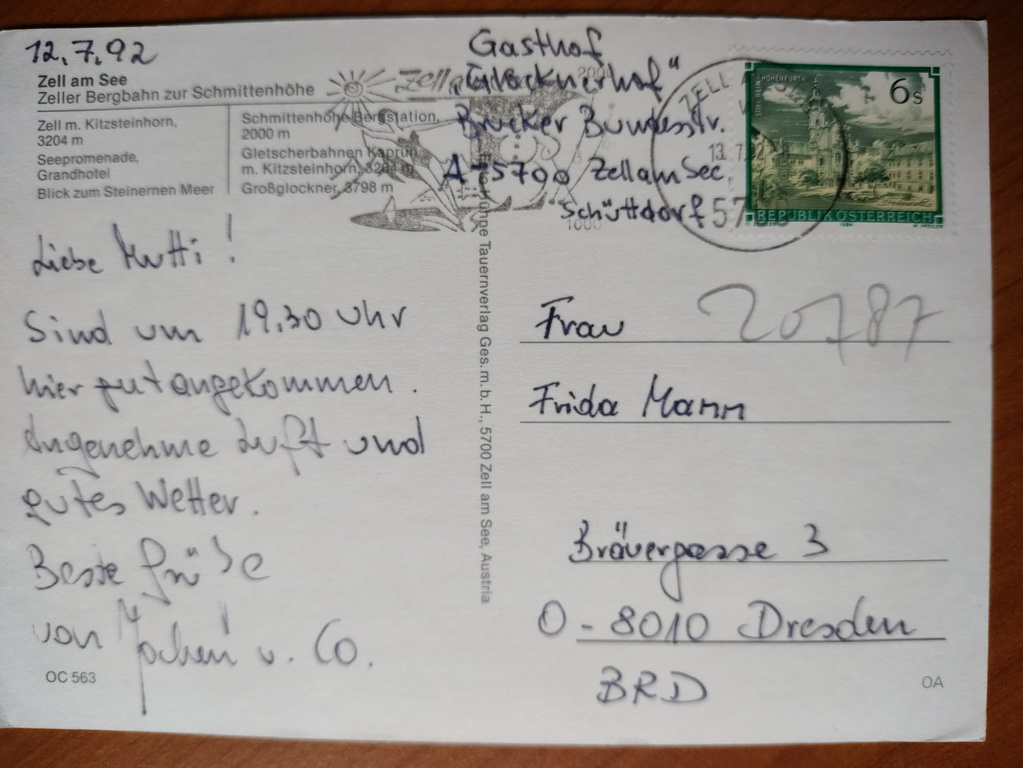 12.7.92
Zell am See
Zeller Bergbahn zur Schmittenhöhe
Zell m. Kitzsteinhorn,
3204 m
Seepromenade,
Grandhotel
Blick zum Steinernen Meer
Schmittenhöhe Bergstation,
2000 m
Gletscherbahnen Kaprun
m. Kitzsteinhorn, 3204 m
Großglockner, 3798 m
Liebe Mutti!
Sind um 19.30 Uhr
hier gut angekommen.
Angenehme Luft und
gutes Wetter.
Beste Grüße
von Jochen u. Co.
OC 563
Kühne Tauernverlag Ges.m.b.H., 5700 Zell am See, Austria
Gasthof
„Glocknerhof"
Brucker Bundesstr.
A-5700 Zell am See
Schüttdorf
Zell
2000
1000
ZELL
13.7.92
570
STIFT HOHENFURTH
6s
REPUBLIK ÖSTERREICH
20787
Frau
Frida Mann
Bräuergasse 3
O-8010 Dresden
BRD
OA